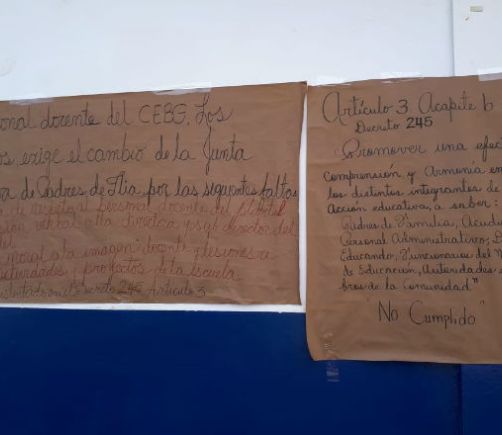 onal docente del CEBG. Los
os exige el cambio de la Junta
va de Padres de Flia por las siguientes faltas
personal docente del plantel
verbal a la directora y sub director del
moral a la imagen docente y lesiones a
y proyectos de la escuela.
Decreto 245 Artículo 3
Artículo 3. Acapite b
Decreto 245
"Promover una efec
comprensión y Armonía en
los distintos integrantes de
acción educativa, a saber:
Padres de Familia, Acudi
Personal Administrativo, D
Educando, Funcionarios del M
de Educación, Autoridades
bros de la Comunidad"
No Cumplido"